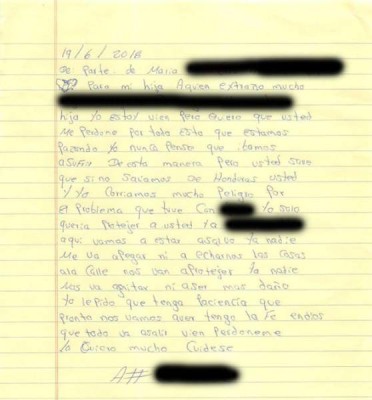 19/6/2018
De Parte de Maria
Para mi hija Aquien extraño mucho
hija Yo estoy vien Pero quiero que usted
Me Perdone Por todo esto que estamos
Pazando Yo nunca Penso que ibamos
asufrir De esta manera Pero usted save
que si no saliamos De Honduras usted
y Yo Corriamos mucho Peligro Por
el Problema que tuve Con Yo solo
queria Protejer a usted Ya
aqui vamos a estar asalvo Ya nadie
me va apegar ni a echarnos las Casas
ala Calle nos van aProtejer Ya nadie
nos va aguitar ni aser mas daño
Yo lepido que tenga Paciencia que
Pronto nos vamos aver tengo la fe endios
que todo va asalir vien Perdoneme
la Quiero mucho Cuidese
Att